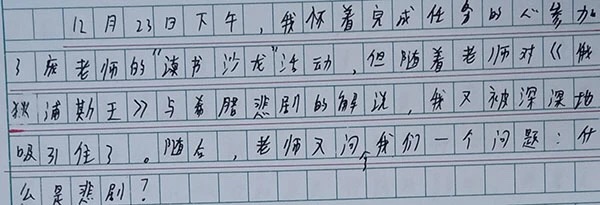 12月23日下午，我怀着完成任务的心参加
了庞老师的“读书沙龙”活动，但随着老师对《俄
狄浦斯王》与希腊悲剧的解说，我又被深深地
吸引住了。随后，老师又问我们一个问题：什
么是悲剧？